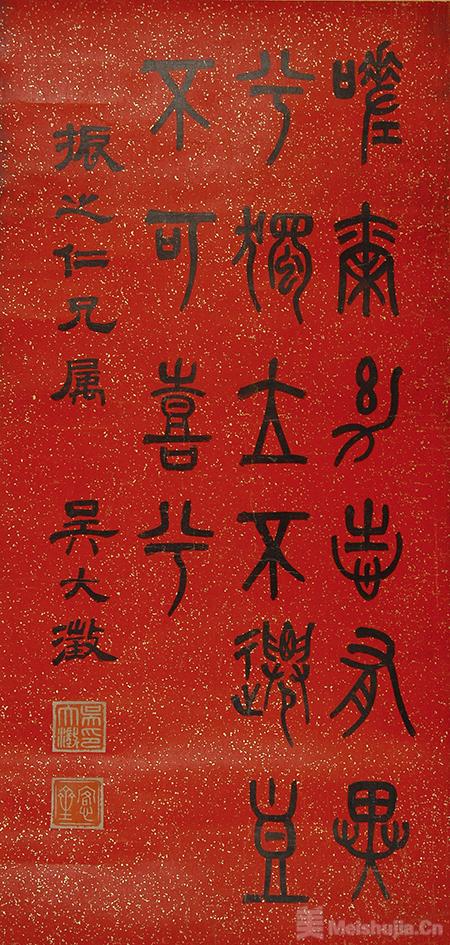 嗟爾幼志有異
兮獨立不遷豈
不可喜兮
振之仁兄属 吳大澂
吳印大澂
愙齋
美 Meishujia.Cn